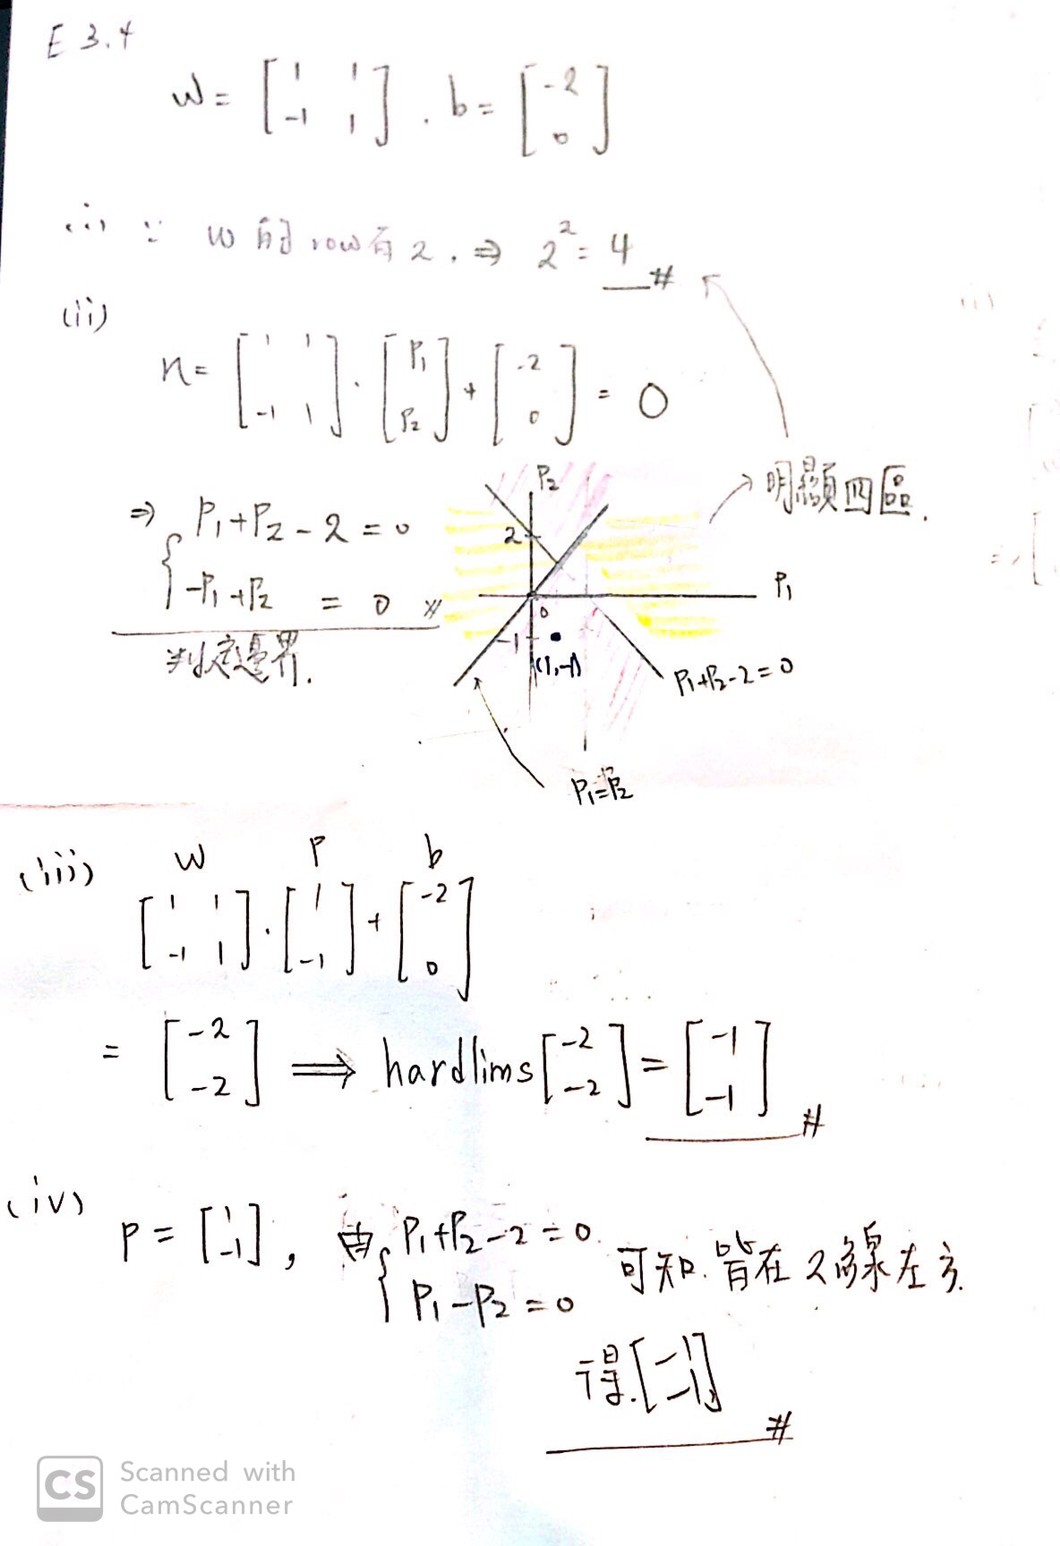 E 3.4
W = [1 1; -1 1] . b = [-2; 0]
(i) ∵ W 的 row 有 2 . ⇒ 2² = 4 #
(ii)
n = [1 1; -1 1] · [P₁; P₂] + [-2; 0] = 0
⇒ { P₁+P₂-2=0
-P₁+P₂ = 0 #
判定邊界.
明顯四區.
P₂
2
P₁
0
-1
(1,-1)
P₁+P₂-2=0
P₁=P₂
(iii) W P b
[1 1; -1 1] · [1; -1] + [-2; 0]
= [-2; -2] ⟹ hardlims [-2; -2] = [-1; -1] #
(iv) P = [1; -1], 由 { P₁+P₂-2=0
P₁-P₂=0 可知. 皆在 2 線左方.
得. [-1; -1] #
CS Scanned with
CamScanner